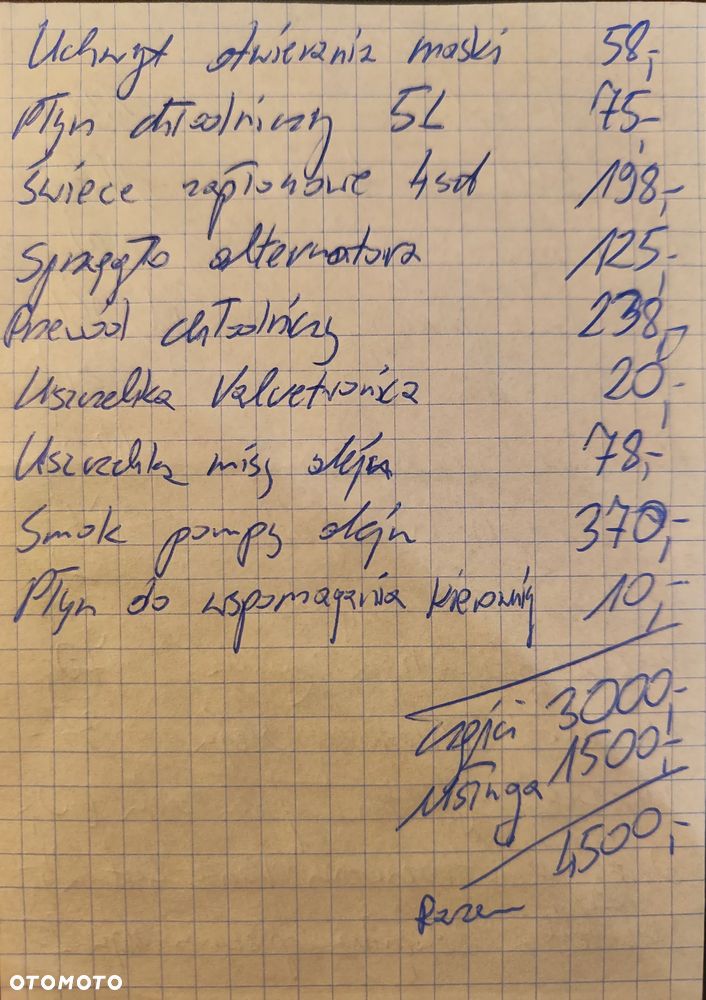 Uchwyt otwierania maski 58,-
Płyn chłodniczy 5L 75,-
Świece zapłonowe 4szt 198,-
Sprzęgło alternatora 125,-
Przewód chłodniczy 238,-
Uszczelka Valvetronica 20,-
Uszczelka misy oleju 78,-
Smok pompy oleju 370,-
Płyn do wspomagania kierownicy 10,-
części 3000,-
usługa 1500,-
4500,-
Razem
OTOMOTO